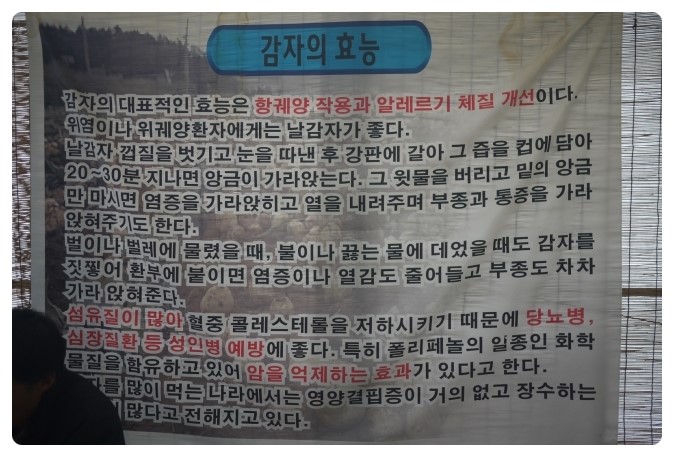 감자의 효능
감자의 대표적인 효능은 항궤양 작용과 알레르기 체질 개선이다.
위염이나 위궤양환자에게는 날감자가 좋다.
날감자 껍질을 벗기고 눈을 따낸 후 강판에 갈아 그 즙을 컵에 담아
20~30분 지나면 앙금이 가라앉는다. 그 윗물을 버리고 밑의 앙금
만 마시면 염증을 가라앉히고 열을 내려주며 부종과 통증을 가라
앉혀주기도 한다.
벌이나 벌레에 물렸을 때, 불이나 끓는 물에 데었을 때도 감자를
짓찧어 환부에 붙이면 염증이나 열감도 줄어들고 부종도 차차
가라 앉혀준다.
섬유질이 많아 혈중 콜레스테롤을 저하시키기 때문에 당뇨병,
심장질환 등 성인병 예방에 좋다. 특히 폴리페놀의 일종인 화학
물질을 함유하고 있어 암을 억제하는 효과가 있다고 한다.
를 많이 먹는 나라에서는 영양결핍증이 거의 없고 장수하는
많다고 전해지고 있다.